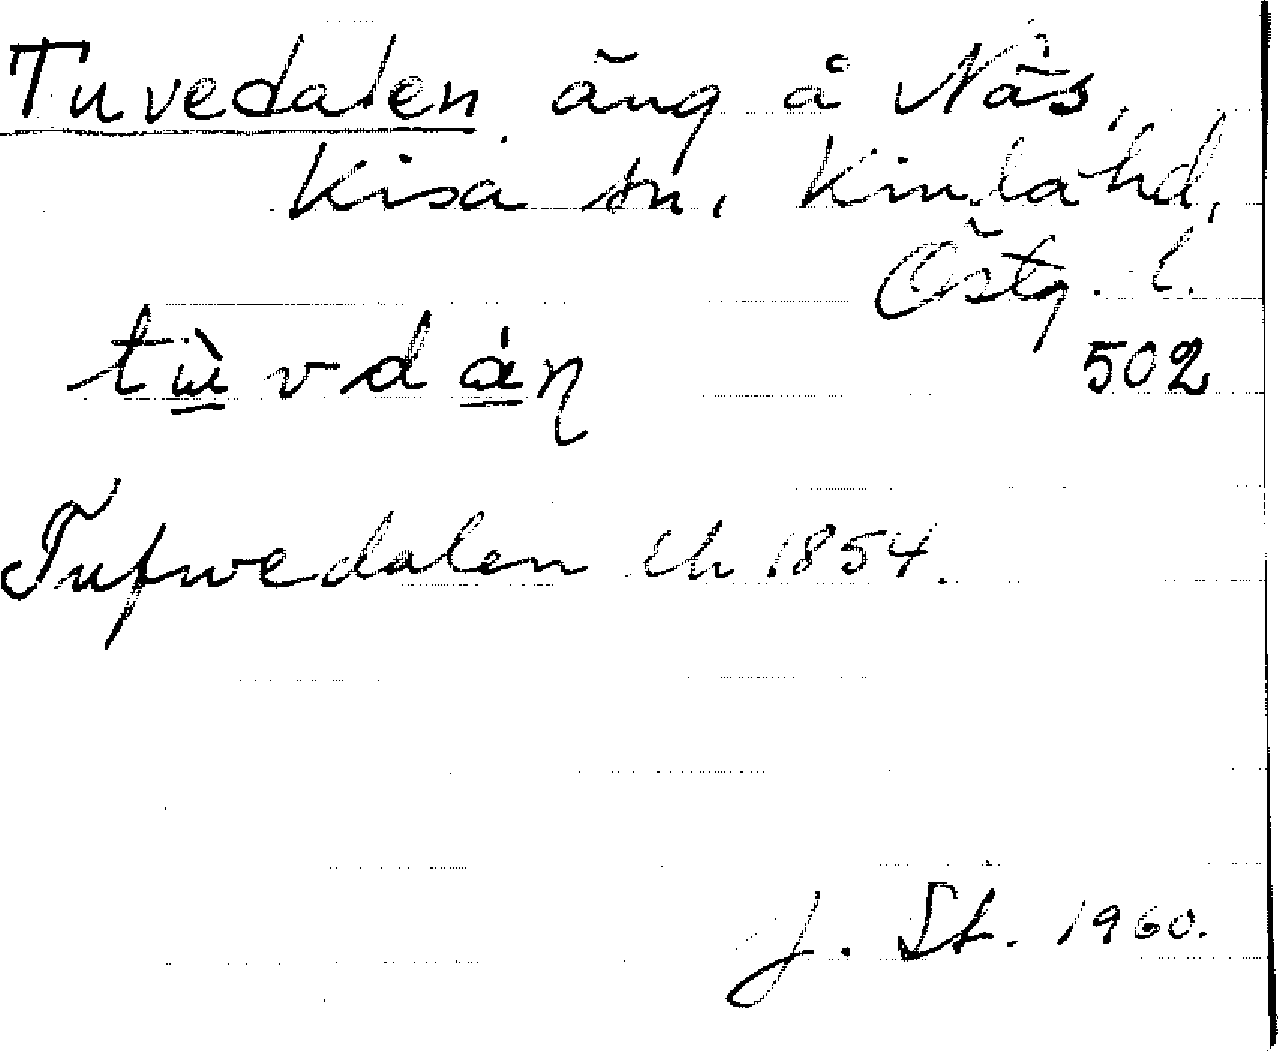 Tuvedalen äng å Näs,
Kisa sn, Kinda hd,
Östg. l.
502
Tufwedalen Lh 1854.
J. St. 1960.